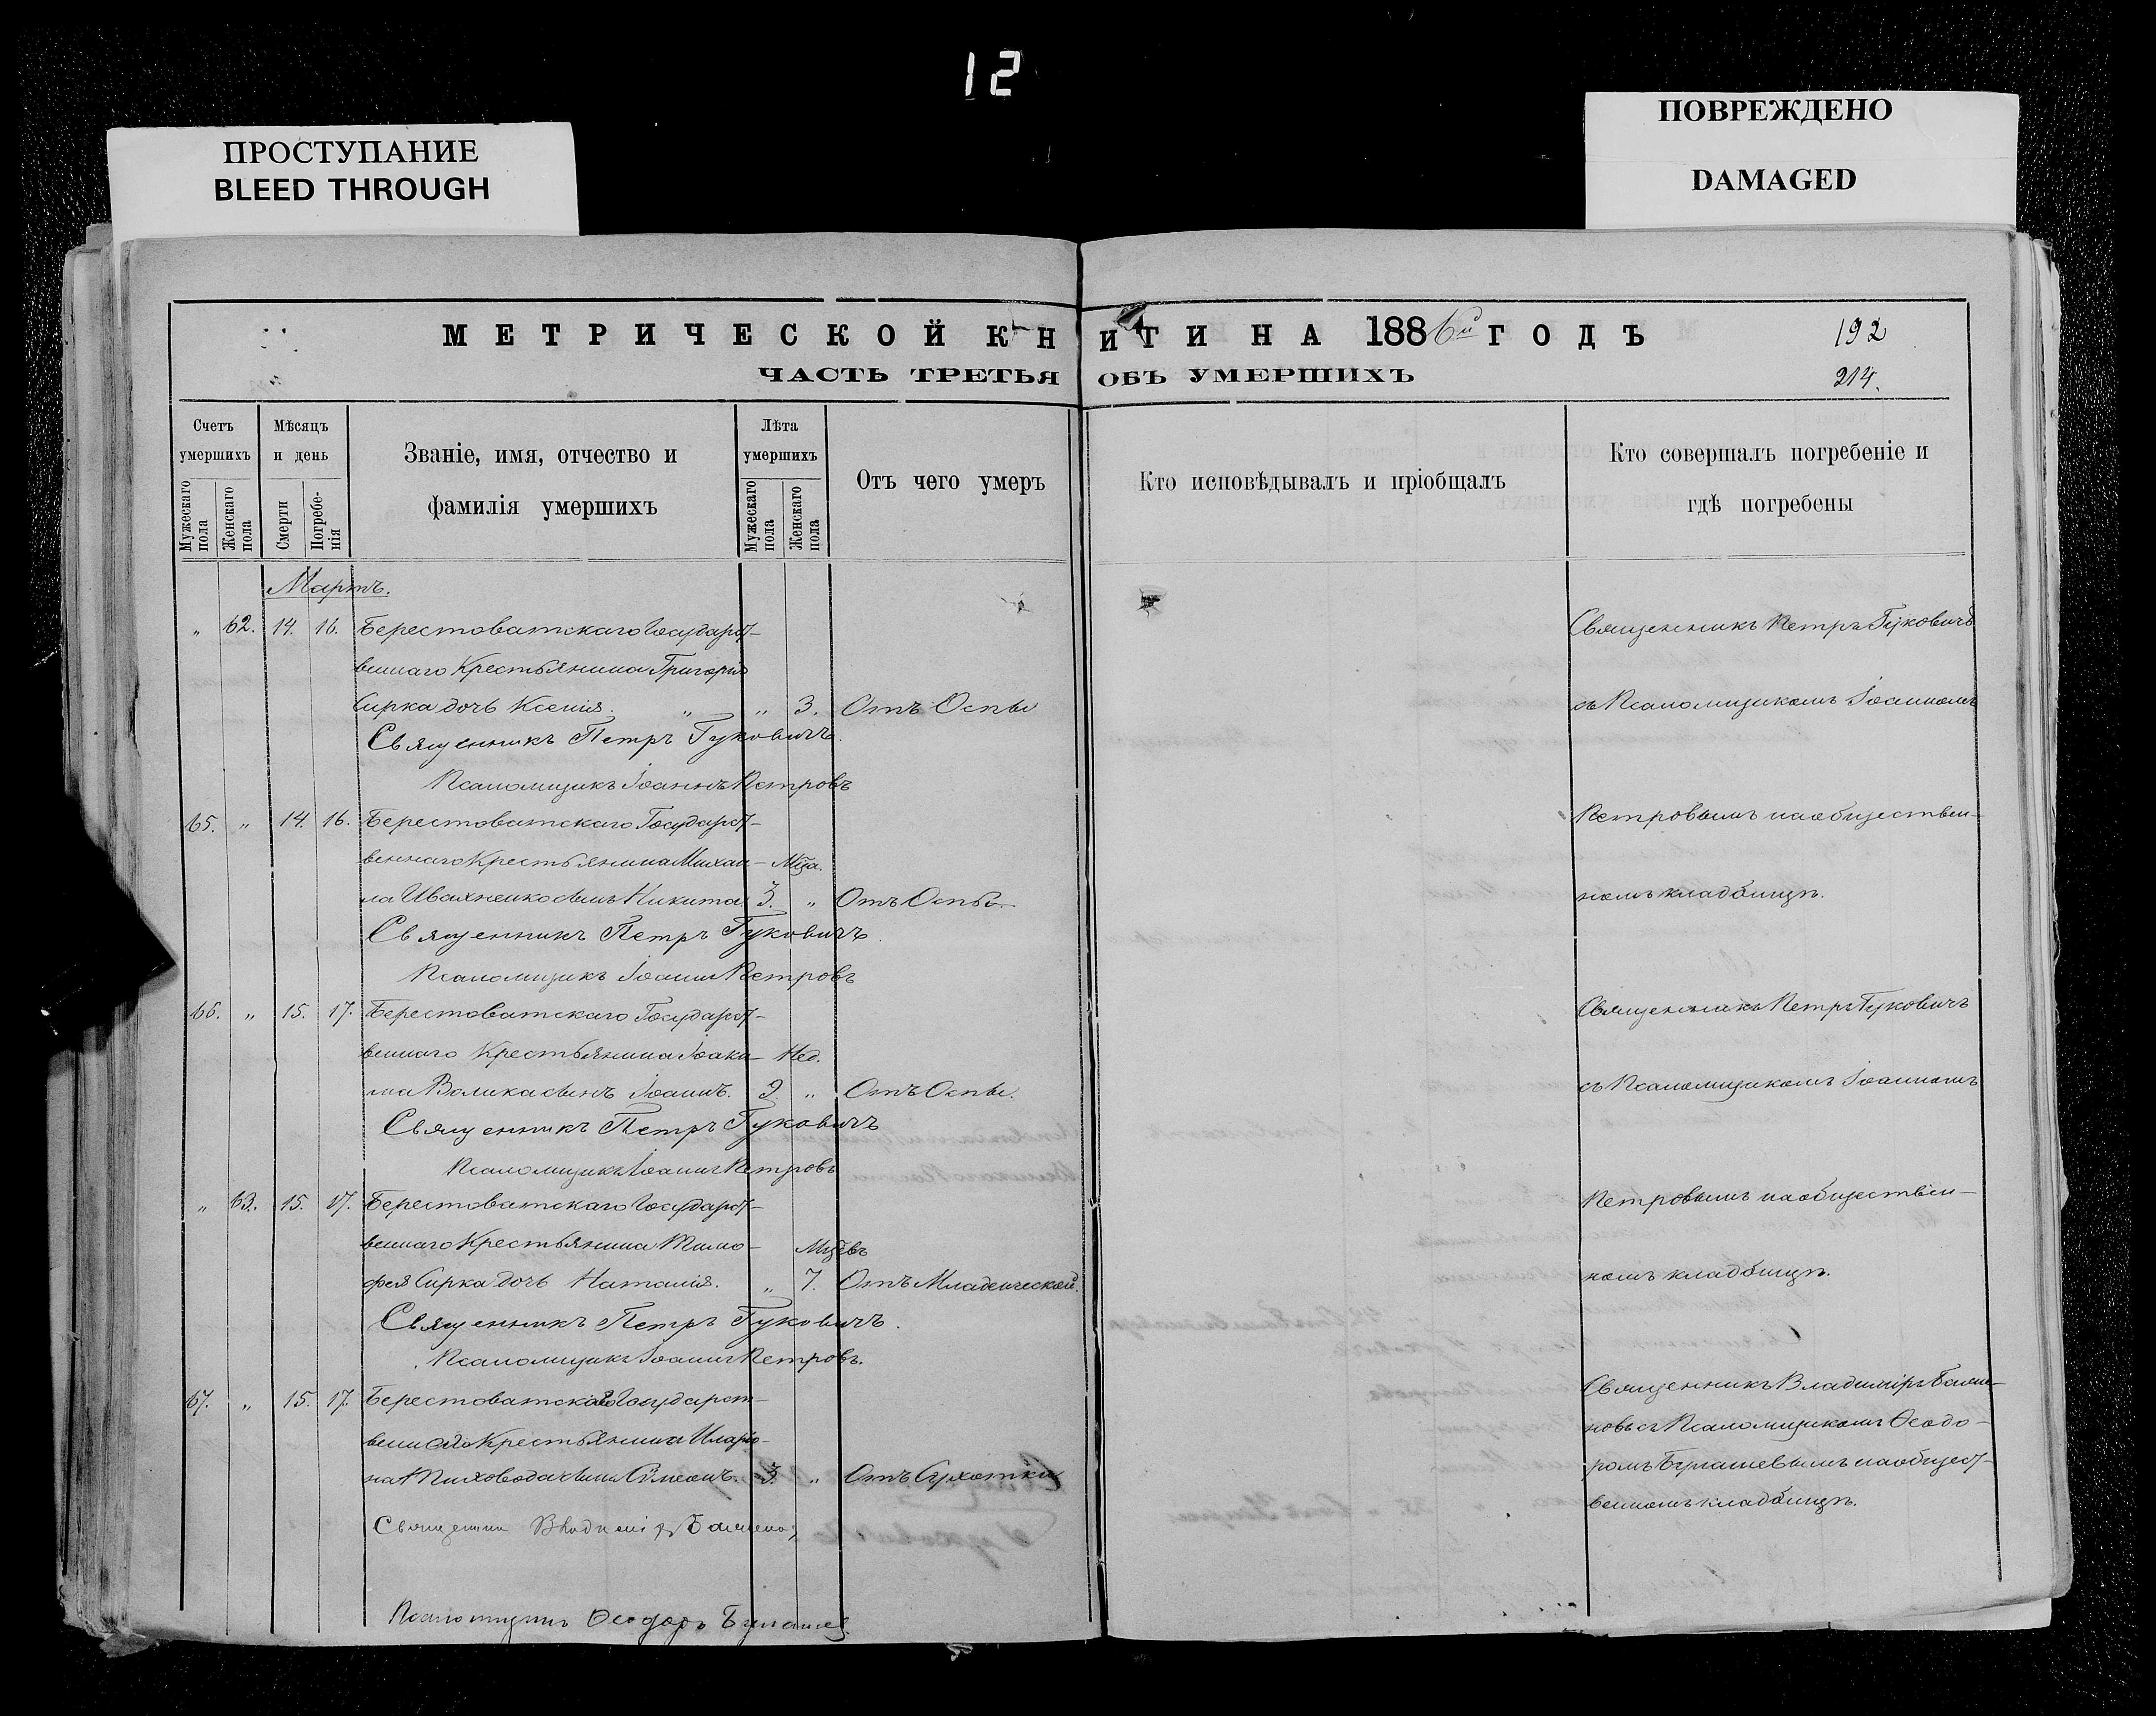 12
ПРОСТУПАНИЕ
BLEED THROUGH
ПОВРЕЖДЕНО
DAMAGED
МЕТРИЧЕСКОЙ КНИГИ НА 1886й ГОДЪ
192
ЧАСТЬ ТРЕТЬЯ ОБЪ УМЕРШИХЪ
214.
Счетъ умершихъ
Мужескаго пола
Женскаго пола
Мѣсяцъ и день
Смерти
Погребенія
Званіе, имя, отчество и
фамилія умершихъ
Лѣта умершихъ
Мужескаго пола
Женскаго пола
Отъ чего умеръ
Кто исповѣдывалъ и пріобщалъ
Кто совершалъ погребеніе и
гдѣ погребены
Мартъ.
" 62. 14. 16. Берестоватскаго Государст-
веннаго Крестьянина Григорія
Сирка дочь Ксенія. " " 3. Отъ Оспы
Священникъ Петръ Гуковичъ.
Псаломщикъ Іоаннъ Петровъ
Священникъ Петръ Гуковичъ
съ Псаломщикомъ Іоанномъ
65. " 14. 16. Берестоватскаго Государст-
веннаго Крестьянина Михаи- Мца.
ла Ивахненко сынъ Никита 3. " Отъ Оспы.
Священникъ Петръ Гуковичъ.
Псаломщикъ Іоаннъ Петровъ
Петровымъ на обществен-
номъ кладбищѣ.
66. " 15. 17. Берестоватскаго Государст-
веннаго Крестьянина Іоаки- Нед.
ма Волика сынъ Іоаннъ. 2. " Отъ Оспы.
Священникъ Петръ Гуковичъ
Псаломщикъ Іоаннъ Петровъ
Священникъ Петръ Гуковичъ
съ Псаломщикомъ Іоанномъ
" 63. 15. 17. Берестоватскаго Государст-
веннаго Крестьянина Тимо- Мцевъ
фея Сирка дочь Наталія. " 7. Отъ Младенческой.
Священникъ Петръ Гуковичъ.
Псаломщикъ Іоаннъ Петровъ.
Петровымъ на обществен-
номъ кладбищѣ.
67. " 15. 17. Берестоватскаго Государст-
веннаго Крестьянина Иларіо-
на сынъ Сѵмеонъ. 3. " Отъ Сухотки
Священникъ Владиміръ
Псаломщикъ Ѳеодоръ
Священникъ Владиміръ
съ Псаломщикомъ Ѳеодо-
ромъ на общест-
венномъ кладбищѣ.